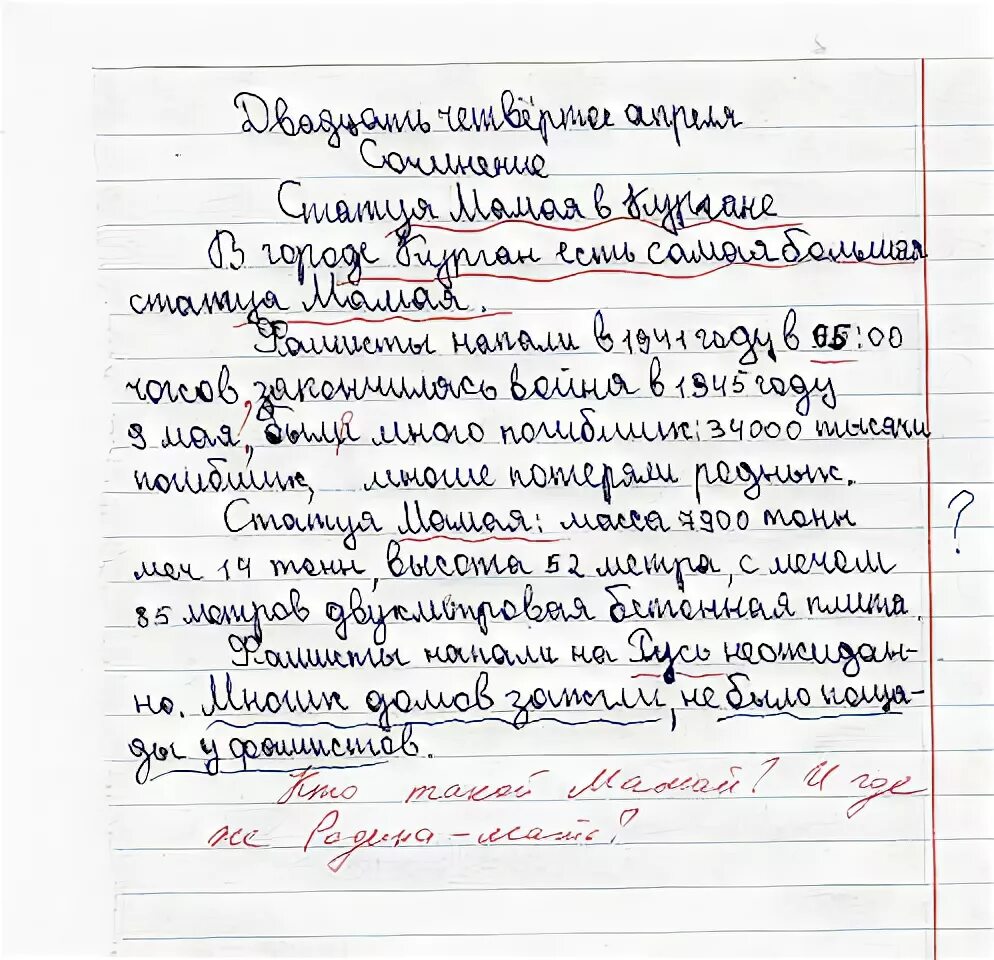 Двадцать четвёртое апреля
Сочинение
Статуя Мамая в Кургане
В городе Курган есть самая большая
статуя Мамая.
Фашисты напали в 1941 году в 05:00
часов, закончилась война в 1945 году
9 мая, было много погибших: 34000 тысячи
погибших, многие потеряли родных.
Статуя Мамая: масса 7900 тонн
меч 14 тонн, высота 52 метра, с мечом
85 метров двухметровая бетонная плита.
?
Фашисты напали на Русь неожидан-
но. Многих домов зажгли, не было поща-
ды у фашистов.
Кто такой Мамай? И где
же Родина-мать?